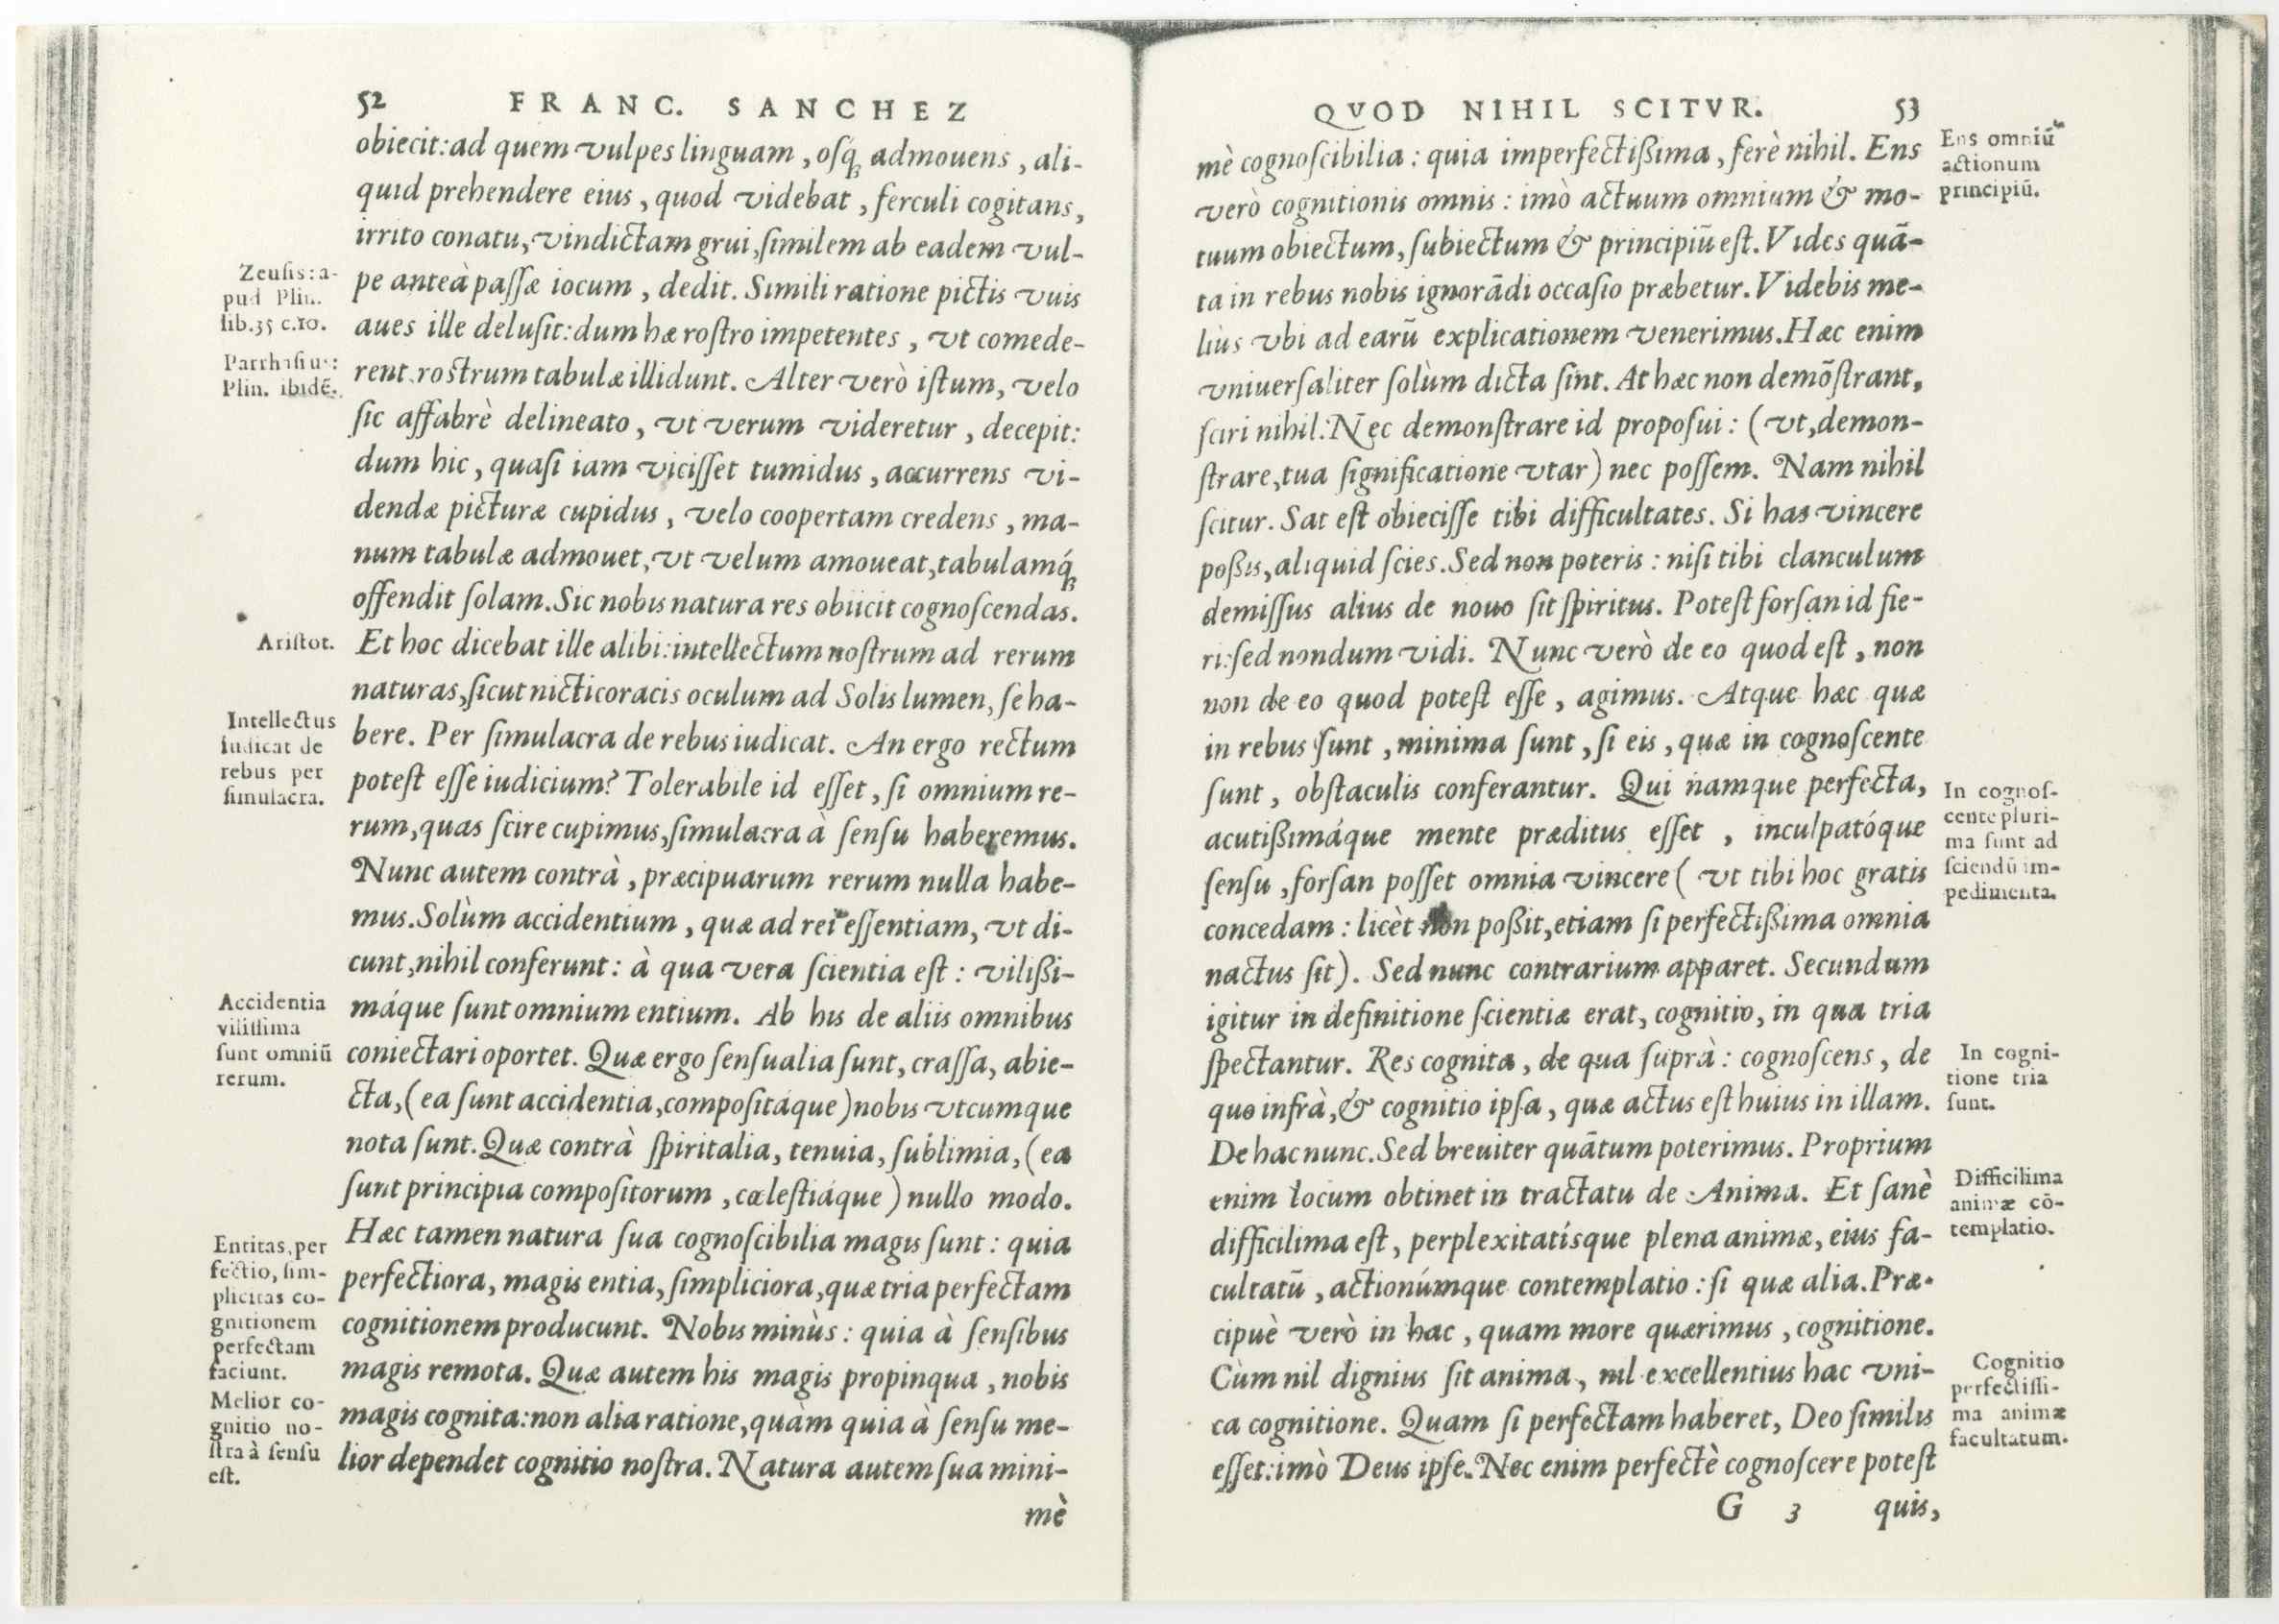 52 FRANC. SANCHEZ
obiecit: ad quem vulpes linguam, osq; admouens, ali-
quid prehendere eius, quod videbat, ferculi cogitans,
irrito conatu, vindictam grui, similem ab eadem vul-
pe anteà passæ iocum, dedit. Simili ratione pictis vuis
aues ille delusit: dum hæ rostro impetentes, vt comede-
rent, rostrum tabulæ illidunt. Alter verò istum, velo
sic affabrè delineato, vt verum videretur, decepit:
dum hic, quasi iam vicisset tumidus, accurrens vi-
dendæ picturæ cupidus, velo coopertam credens, ma-
num tabulæ admouet, vt velum amoueat, tabulamq́;
offendit solam. Sic nobis natura res obiicit cognoscendas.
Et hoc dicebat ille alibi: intellectum nostrum ad rerum
naturas, sicut nicticoracis oculum ad Solis lumen, se ha-
bere. Per simulacra de rebus iudicat. An ergo rectum
potest esse iudicium? Tolerabile id esset, si omnium re-
rum, quas scire cupimus, simulacra à sensu haberemus.
Nunc autem contrà, præcipuarum rerum nulla habe-
mus. Solùm accidentium, quæ ad rei essentiam, vt di-
cunt, nihil conferunt: à qua vera scientia est: vilißi-
máque sunt omnium entium. Ab his de aliis omnibus
coniectari oportet. Quæ ergo sensualia sunt, crassa, abie-
cta, (ea sunt accidentia, compositáque) nobis vtcumque
nota sunt. Quæ contrà spiritalia, tenuia, sublimia, (ea
sunt principia compositorum, cœlestiáque) nullo modo.
Hæc tamen natura sua cognoscibilia magis sunt: quia
perfectiora, magis entia, simpliciora, quæ tria perfectam
cognitionem producunt. Nobis minùs: quia à sensibus
magis remota. Quæ autem his magis propinqua, nobis
magis cognita: non alia ratione, quàm quia à sensu me-
lior dependet cognitio nostra. Natura autem sua mini-
mè
Zeusis: a-
pud Plin.
lib. 35 c. 10.
Parrhasius:
Plin. ibidẽ.
Aristot.
Intellectus
iudicat de
rebus per
simulacra.
Accidentia
vilissima
sunt omniũ
rerum.
Entitas, per
fectio, sim-
plicitas co-
gnitionem
perfectam
faciunt.
Melior co-
gnitio no-
stra à sensu
est.
QVOD NIHIL SCITVR. 53
mè cognoscibilia: quia imperfectißima, ferè nihil. Ens
verò cognitionis omnis: imò actuum omnium & mo-
tuum obiectum, subiectum & principiũ est. Vides quã-
ta in rebus nobis ignorãdi occasio præbetur. Videbis me-
liùs vbi ad earũ explicationem venerimus. Hæc enim
vniuersaliter solùm dicta sint. At hæc non demõstrant,
sciri nihil. Nec demonstrare id proposui: (vt, demon-
strare, tua significatione vtar) nec possem. Nam nihil
scitur. Sat est obiecisse tibi difficultates. Si has vincere
poßis, aliquid scies. Sed non poteris: nisi tibi clanculum
demissus alius de nouo sit spiritus. Potest forsan id fie-
ri: sed nondum vidi. Nunc verò de eo quod est, non
non de eo quod potest esse, agimus. Atque hæc quæ
in rebus sunt, minima sunt, si eis, quæ in cognoscente
sunt, obstaculis conferantur. Qui namque perfecta,
acutißimáque mente præditus esset, inculpatóque
sensu, forsan posset omnia vincere (vt tibi hoc gratis
concedam: licèt non poßit, etiam si perfectißima omnia
nactus sit). Sed nunc contrarium apparet. Secundum
igitur in definitione scientiæ erat, cognitio, in qua tria
spectantur. Res cognita, de qua suprà: cognoscens, de
quo infrà, & cognitio ipsa, quæ actus est huius in illam.
De hac nunc. Sed breuiter quãtum poterimus. Proprium
enim locum obtinet in tractatu de Anima. Et sanè
difficilima est, perplexitatísque plena animæ, eius fa-
cultatũ, actionúmque contemplatio: si quæ alia. Præ-
cipuè verò in hac, quam more quærimus, cognitione.
Cùm nil dignius sit anima, nil excellentius hac vni-
ca cognitione. Quam si perfectam haberet, Deo similis
esset: imò Deus ipse. Nec enim perfectè cognoscere potest
G 3 quis,
Ens omniũ
actionum
principiũ.
In cognos-
cente pluri-
ma sunt ad
sciendũ im-
pedimenta.
In cogni-
tione tria
sunt.
Difficilima
animæ cõ-
templatio.
Cognitio
perfectissi-
ma animæ
facultatum.